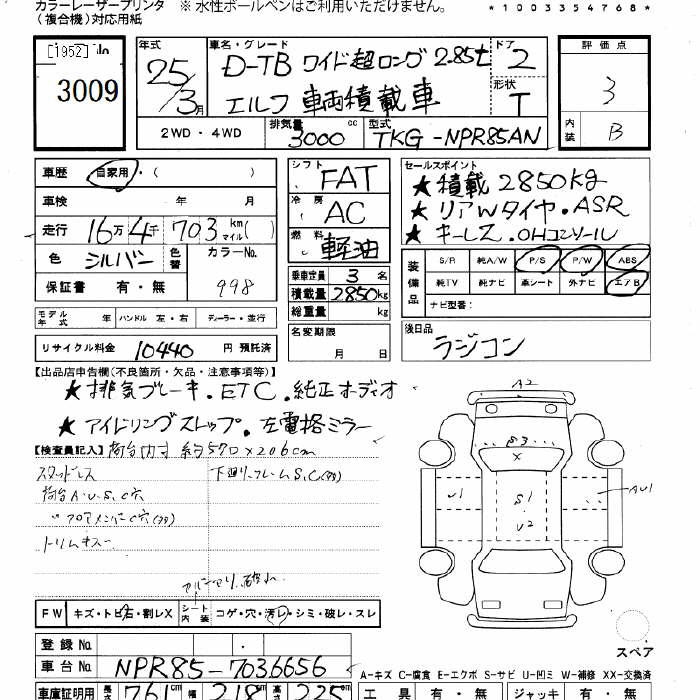 カラーレーザープリンタ ※ 水性ボールペンはご利用いただけません。
(複合機)対応用紙
*1003354768*
[1952] No
3009
年式 25/3月
車名・グレード D-TB ワイド超ロング 2.85t
エルフ 車両積載車
ドア 2
形状 T
評価点 3
内装 B
2WD・4WD
排気量 3000 cc
型式 TKG-NPR85AN
車歴 自家用・( )
車検 年 月
走行 16万4千703 km マイル( )
色 シルバー 色替 カラーNo. 998
保証書 有・無
モデル年式 年 ハンドル 左・右 ディーラー・並行
リサイクル料金 10440 円 預託済
シフト FAT
冷房 AC
燃料 軽油
乗車定員 3 名
積載量 2850 kg
総重量 kg
名変期限 月 日
セールスポイント
★ 積載 2850kg
★ リアWタイヤ・ASR
★ キーレス・OHコンソール
装備品 S/R 純A/W P/S P/W ABS
純TV 純ナビ 革シート 外ナビ エアB
ナビ型番:
後日品 ラジコン
【出品店申告欄(不良箇所・欠品・注意事項等)】
★排気ブレーキ・ETC・純正オーディオ
★アイドリングストップ・左電格ミラー
【検査員記入】荷台内寸 約570×206cm
スタッドレス 下廻り・フレームS,C(タタ)
荷台A・U・S,C穴
〃フロアメンバーC穴(タタ)
トリムキズ
A2
S3
X
U1 S1 AU1
U2
FW キズ・トビ石・割レX シート内装 コゲ・穴・汚レ・シミ・破レ・スレ
スペア
登録No.
車台No. NPR85-7036656
A-キズ C-腐食 E-エクボ S-サビ U-凹ミ W-補修 XX-交換済
車庫証明用 長さ 761 cm 幅 218 cm 高さ 225 cm
工具 有・無 ジャッキ 有・無